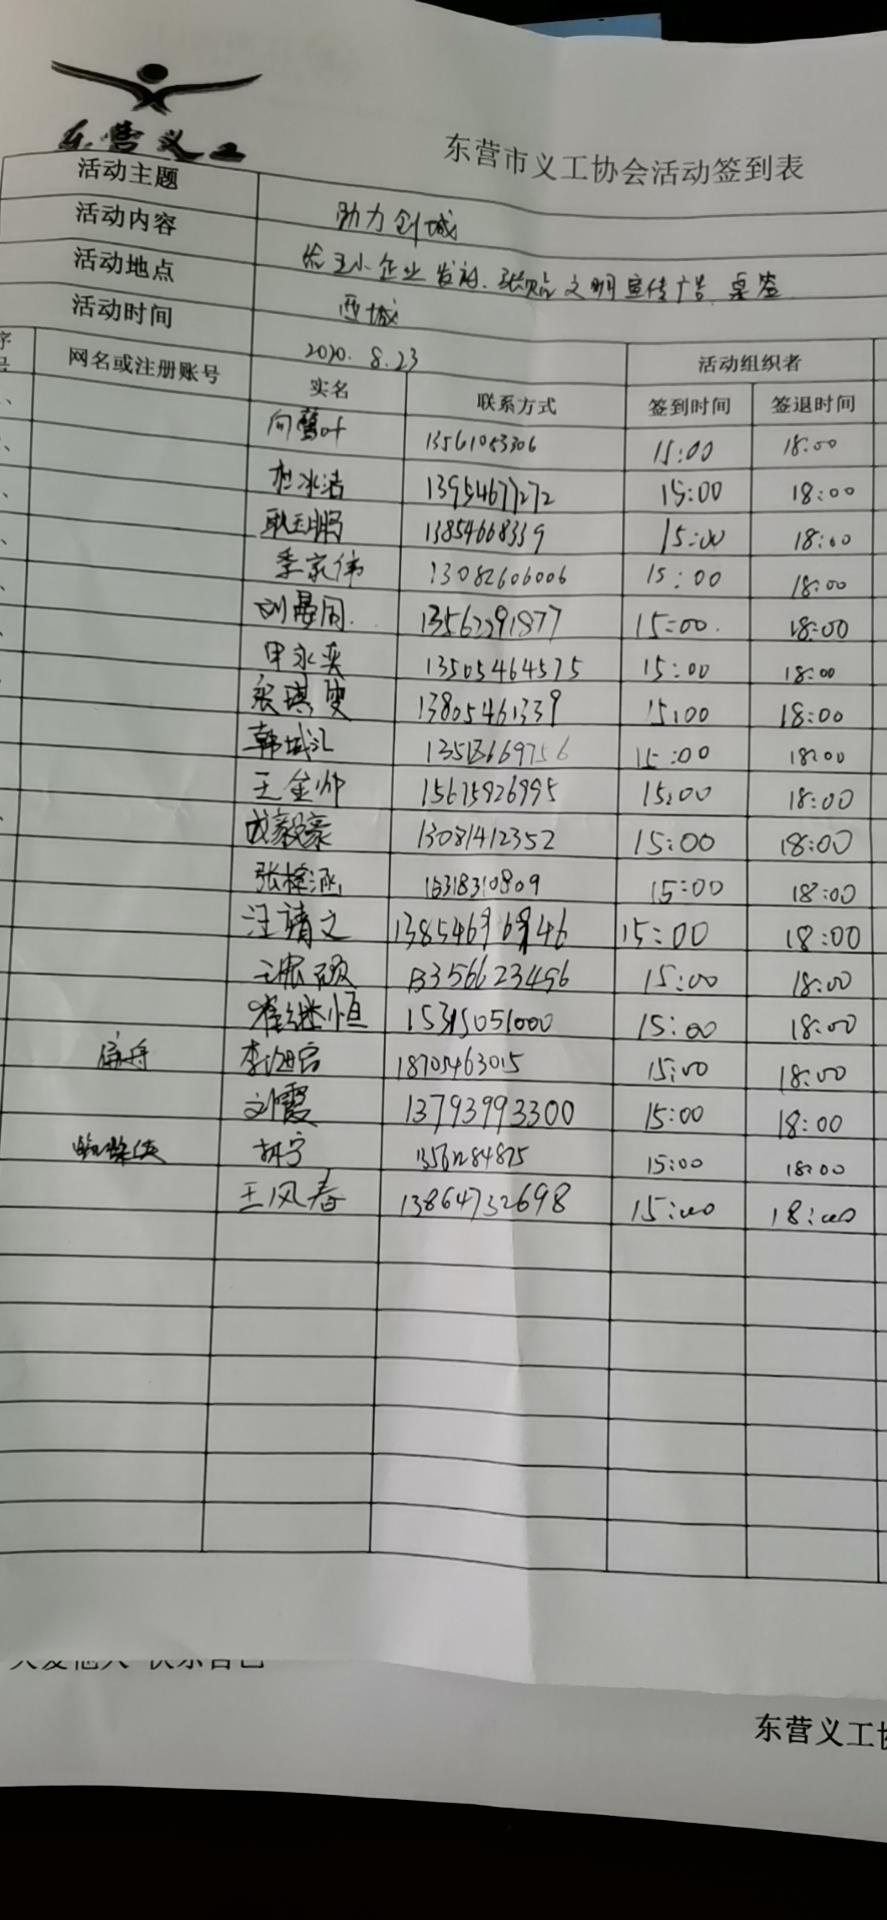 东营义工
东营市义工协会活动签到表
活动主题 助力创城
活动内容 给 小企业发放、张贴文明宣传广告、桌签
活动地点 西城
活动时间 2020.8.23
序号 网名或注册账号 实名 联系方式 活动组织者
签到时间 签退时间
13561053306 15:00 18:00
杜冰洁 13954677272 15:00 18:00
耿玉鹏 13854668339 15:00 18:00
季家伟 13082606006 15:00 18:00
刘晏同 13562291877 15:00 18:00
申永奕 13505464575 15:00 18:00
张琪雯 13805461339 15:00 18:00
韩城汇 15:00 18:00
王金帅 15675926995 15:00 18:00
成毅豪 13081412352 15:00 18:00
张梓涵 15:00 18:00
汪靖文 15:00 18:00
王振硕 13356623496 15:00 18:00
崔继恒 15315051000 15:00 18:00
李 18705463015 15:00 18:00
刘霞 13793993300 15:00 18:00
胡宁 13561284875 15:00 18:00
王风春 13864732698 15:00 18:00
东营义工协